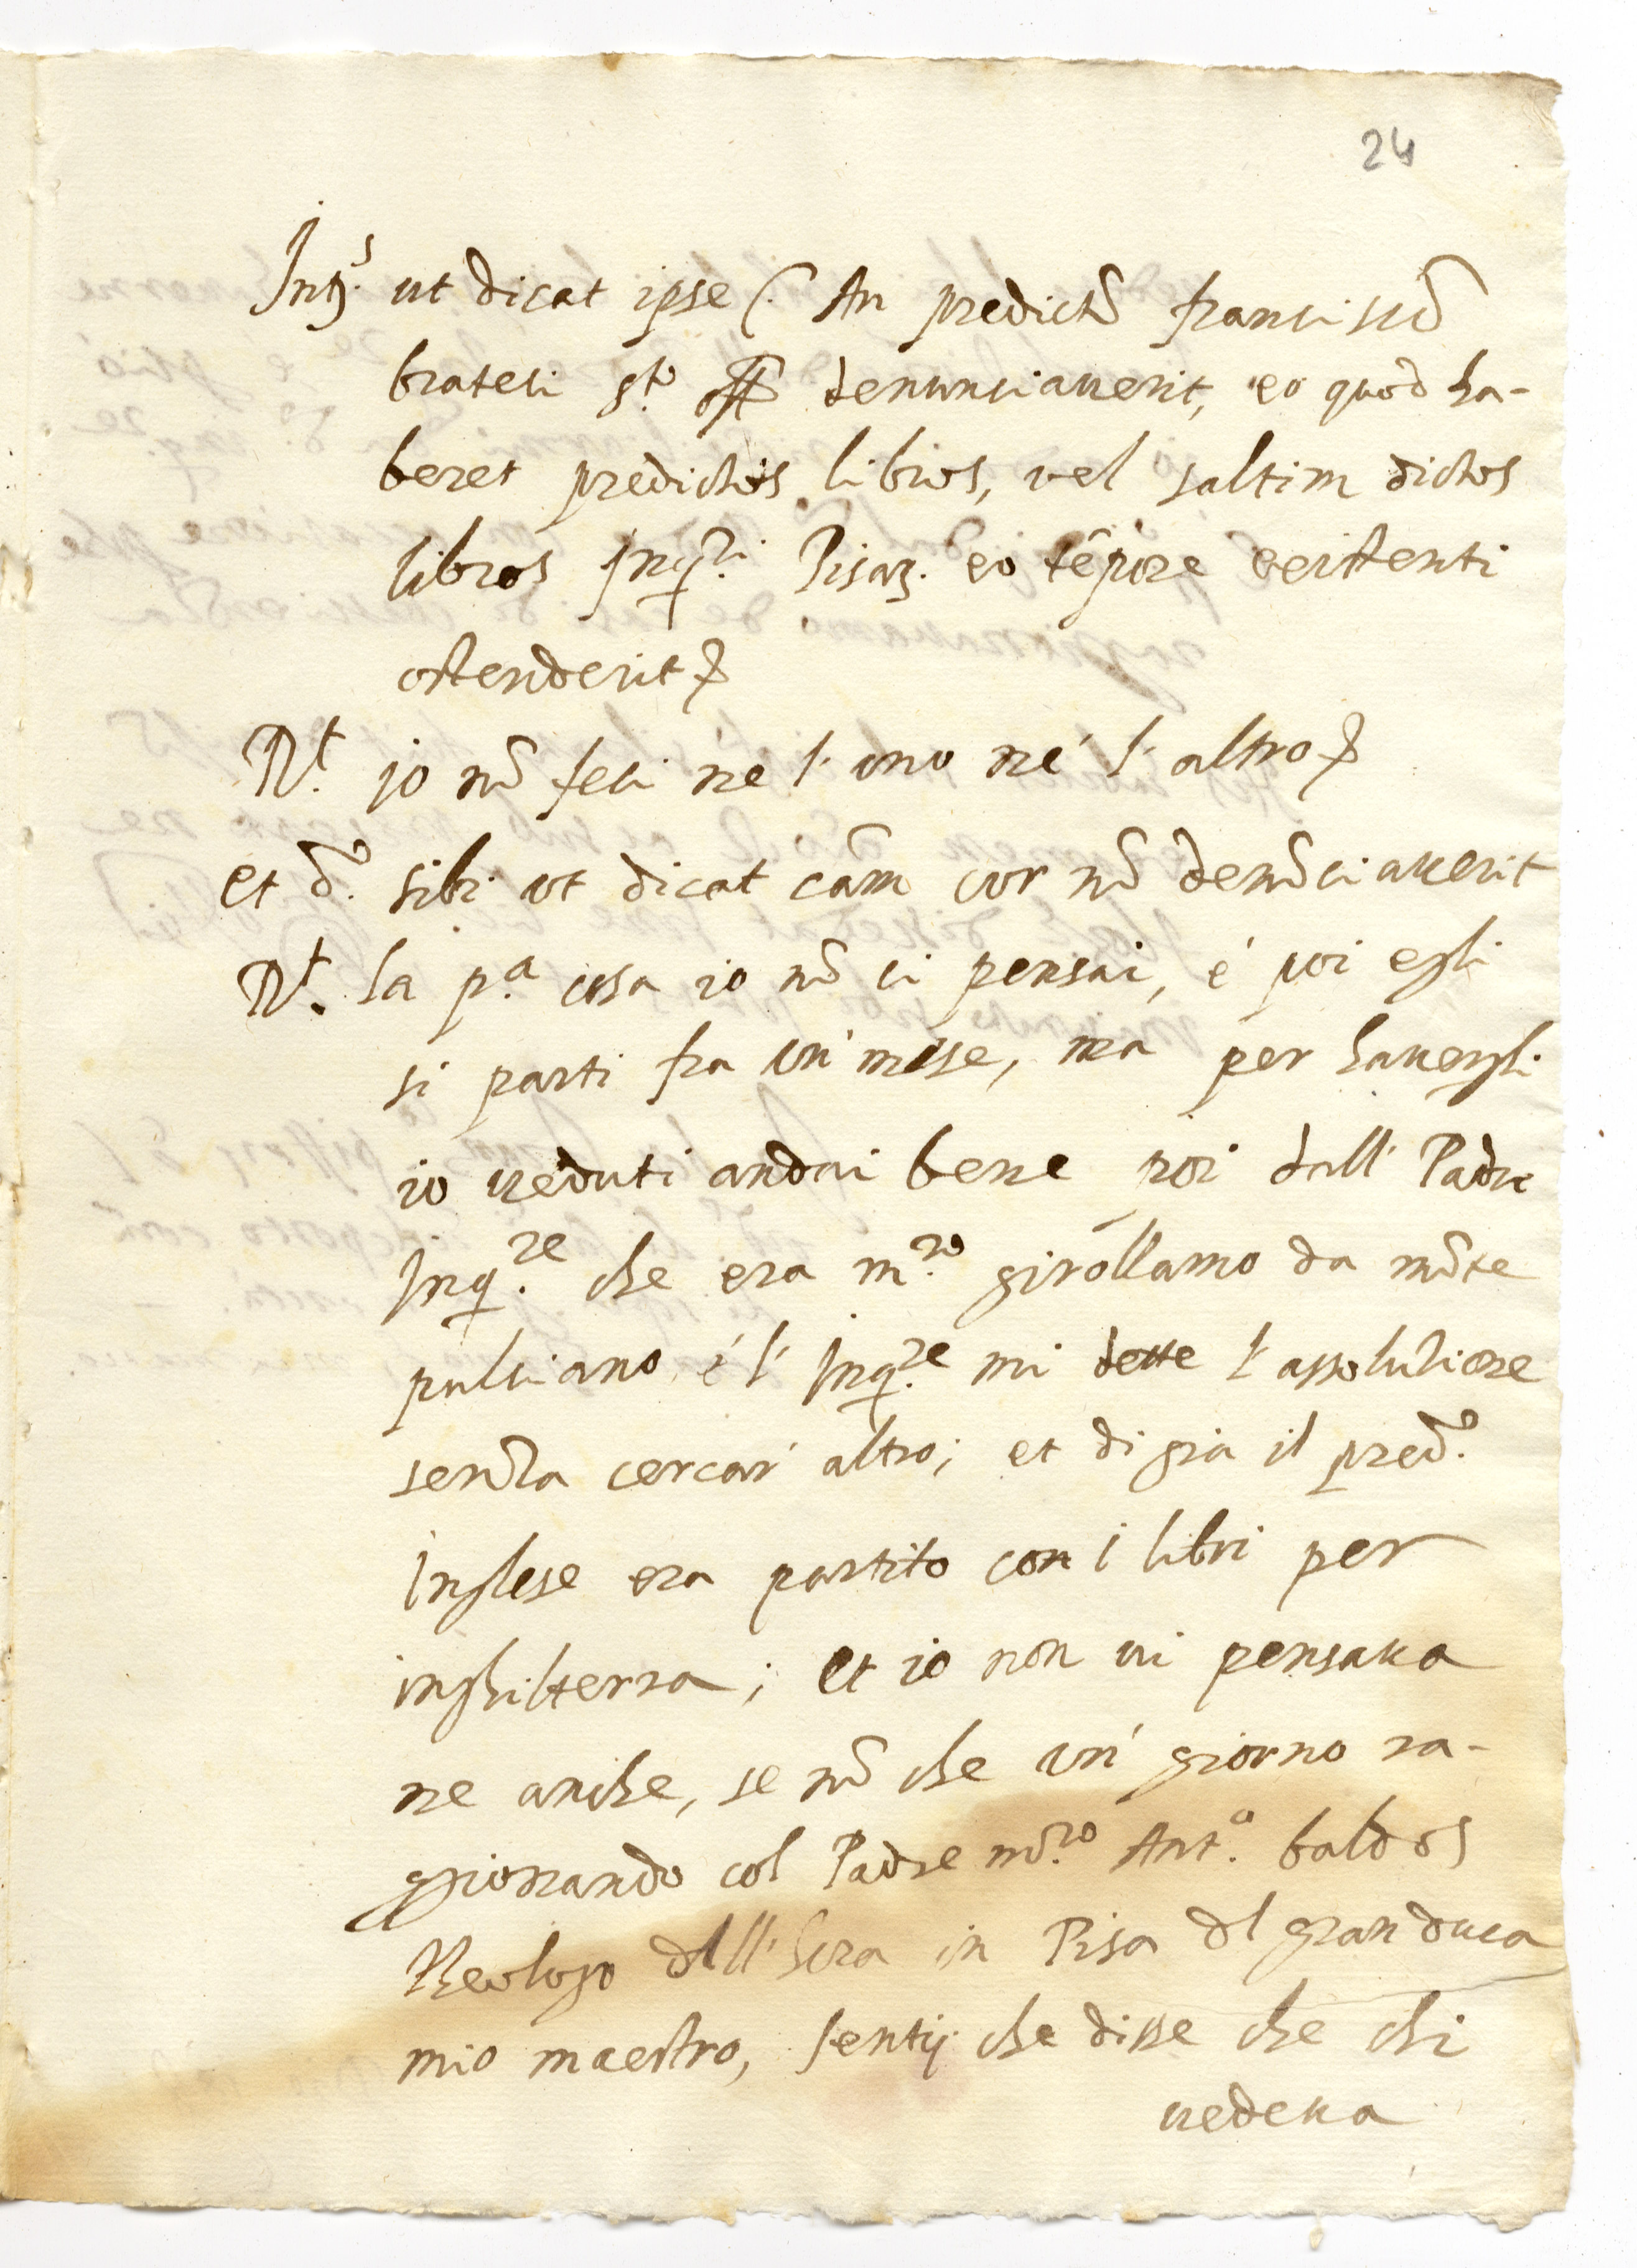 24
Int.s ut dicat ipse C. An predictũ franciscũ
brateci s.to off.o denunciauerit, eo quod ha-
beret predictos libros, vel saltim dictos
libros Inq.ri Pisar. eo tẽpore existenti
ostenderit
R.t io nõ feci ne l'uno ne l'altro
et d.o sibi ut dicat cãm cur nõ denũciauerit
R.t la p.a cosa io nõ ci pensai, é poi egli
si parti fra un' mese, ma per hauergli
io ueduti andai bene poi dall' Padre
Inq.re che era m.ro girollamo da mõte
pulciano é l' Inq.re mi dette l'assolutione
senza cercar' altro; et di gia il pred.o
inglese era partito con i libri per
inghilterra; et io non ui pensaua
ne anche, se nõ che un' giorno ra-
gionando col Padre m.ro Ant.o baldos
Theologo dell' hora in Pisa dl gran duca
mio maestro, sentij che disse che chi
uedeua